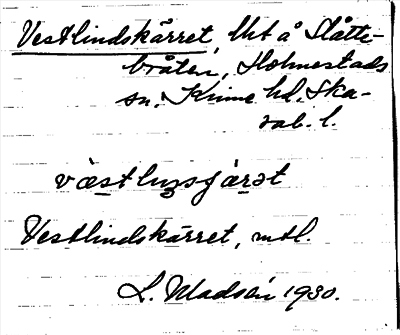 Vestlindskärret, Utt å Slåtte-
bråten, Holmestads
sn. Kinne hd. Ska-
rab. l.
væstlinsɟærət
Vestlindskärret, mtl.
L. Madsén 1930.